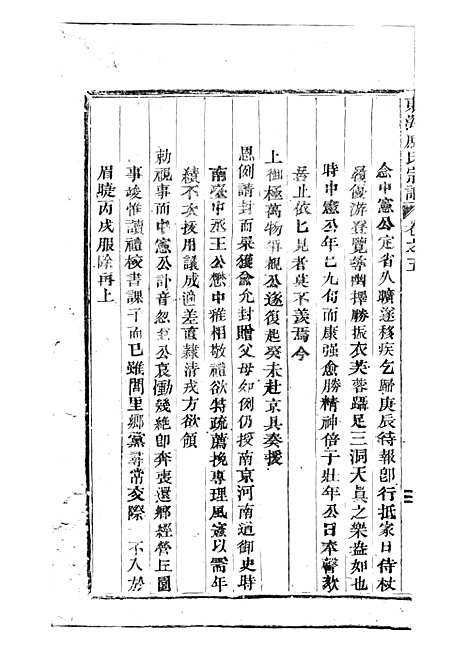 東海 氏宗譜 卷之五
三
念中憲公定省久曠遂移疾乞歸庚辰待報卽行抵家日侍杖
履優游登覽尋幽擇勝振衣芙蓉躡足三洞天眞之樂盎如也
時中憲公年已九旬而康强愈勝精神倍于壯年公日奉謦欬
善止依匕見者莫不羡焉今
上御極萬物 覩公遂復起癸未赴京具奏援
恩例請封而果獲俞允封贈父母如例仍授南京河南道御史時
南臺中丞王公懋中雅相敬禮欲特疏薦挽專理風憲以需年
績不次擢用議成適差直隸清戎方欲領
勅視事而中憲公訃音忽至公哀慟幾絕卽奔喪還鄉經營丘園
事竣惟讀禮校書課子而已雖閭里鄉黨尋常交際 不入於
眉睫丙戌服除再上